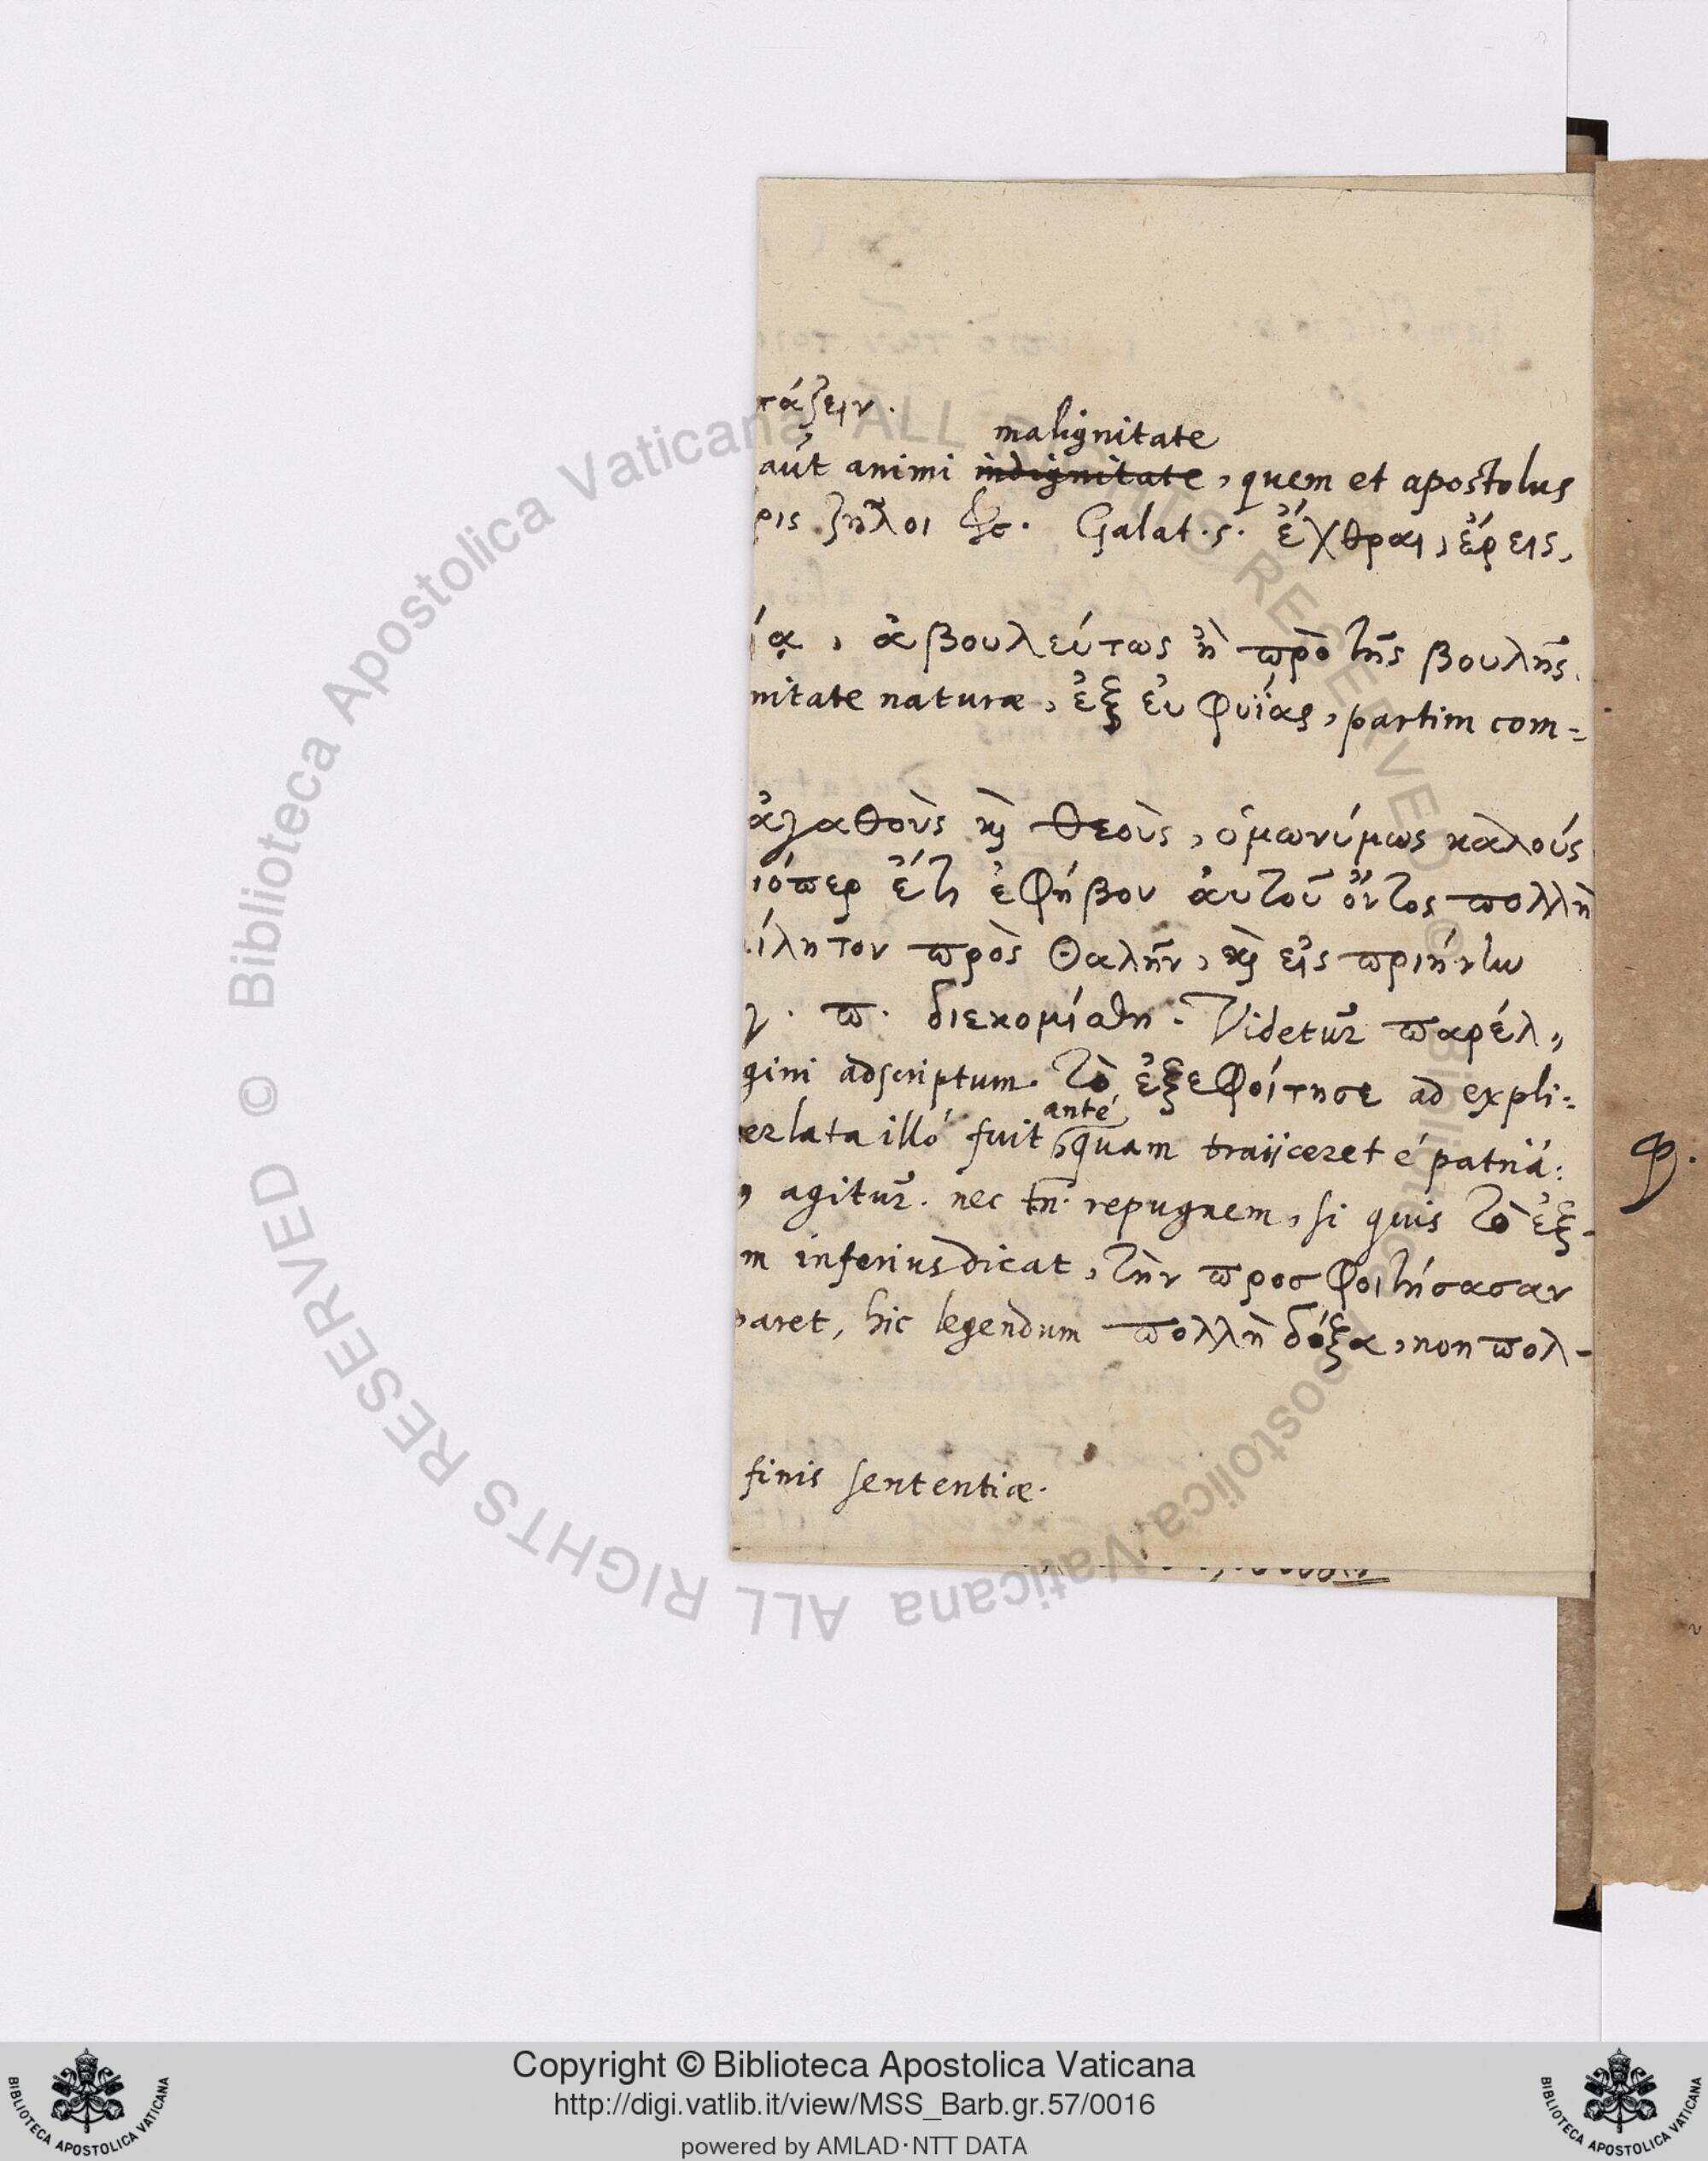 τάξειν.
malignitate
aut animi indignitate, quem et apostolus
ρις ζῆλοι &c. Galat. 5. ἔχθραι, ἔρεις,
ίᾳ, ἀβουλεύτως ἢ πρὸ τῆς βουλῆς.
nitate naturæ, ἐξ εὐφυΐας, partim com=
ἀγαθοὺς κ̀ θεοὺς, ὁμωνύμως καλούς
ιόπερ ἔτι ἐφήβου ἀυτοῦ ὄντος πολλὴ
ίλητον πρὸς Θαλῆν, κ̀ εἰς πριήνην
γ. π. διεκομίσθη. Videtur παρέλ,,
gini adscriptum. τὸ ἐξεφοίτησε ad expli=
anté
erlata illó fuit quam traijceret é patriá:
agitur. nec tn̄. repugnem, si quis τὸ ἐξ-
m inferius dicat, τὴν προσφοιτήσασαν
paret, hic legendum πολλὴ δόξα, non πολ-
finis sententiæ.
φ.
Copyright © Biblioteca Apostolica Vaticana
http://digi.vatlib.it/view/MSS_Barb.gr.57/0016
powered by AMLAD·NTT DATA
BIBLIOTECA APOSTOLICA VATICANA
BIBLIOTECA APOSTOLICA VATICANA
© Biblioteca Apostolica Vaticana ALL RIGHTS RESERVED © Biblioteca Apostolica Vaticana ALL RIGHTS RESERVED